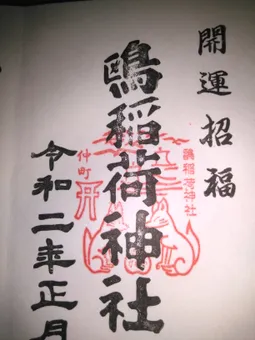 開運招福
鷗稲荷神社
鷗稲荷神社
仲町
令和二年正月